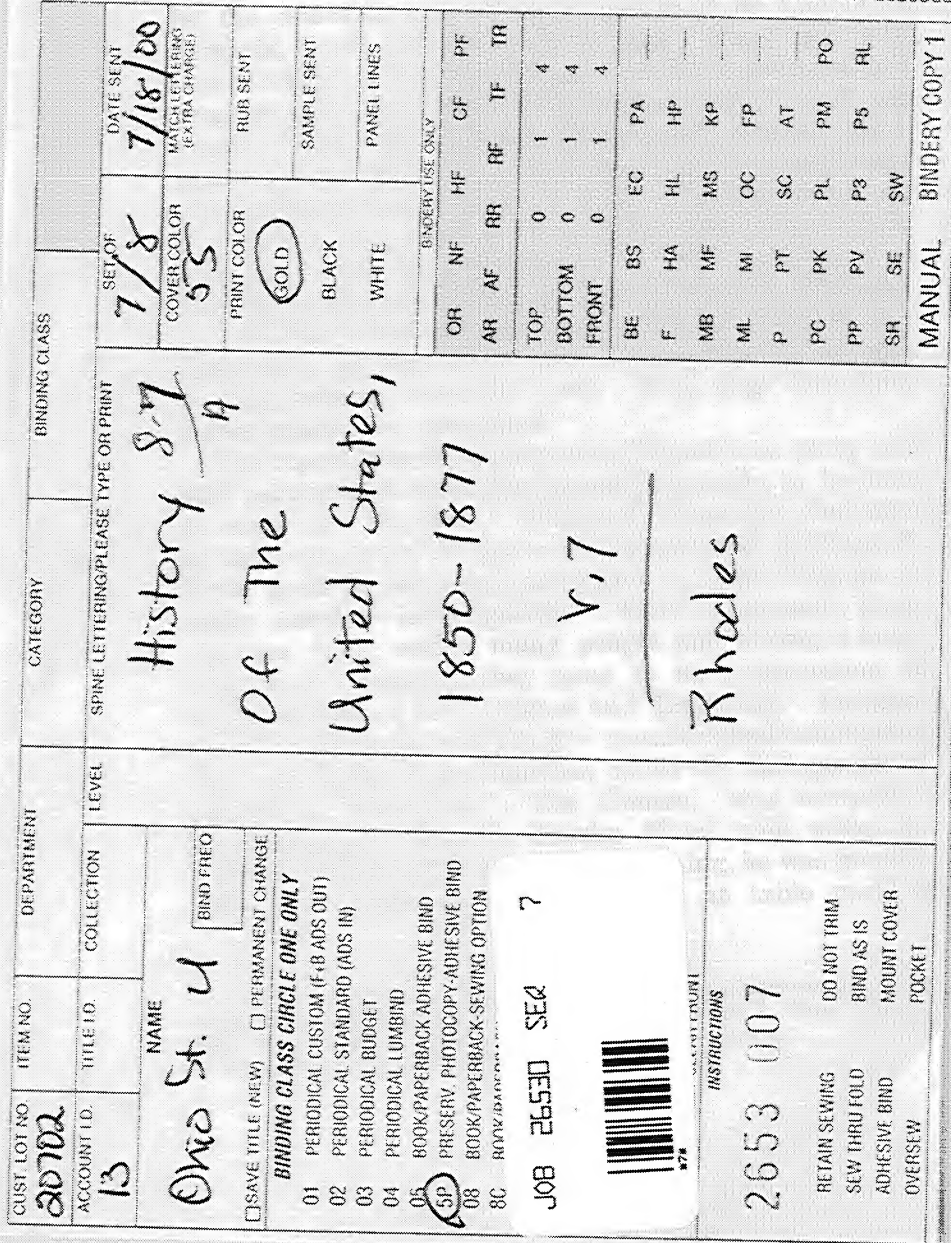 CUST. LOT NO.
20702
ITEM NO.
DEPARTMENT
CATEGORY
BINDING CLASS
ACCOUNT I.D.
13
TITLE I.D.
COLLECTION
LEVEL
NAME
Ohio St. U
BIND FREQ
☐ SAVE TITLE (NEW) ☐ PERMANENT CHANGE
BINDING CLASS CIRCLE ONE ONLY
01 PERIODICAL CUSTOM (F+B ADS OUT)
02 PERIODICAL STANDARD (ADS IN)
03 PERIODICAL BUDGET
04 PERIODICAL LUMBIND
05 BOOK/PAPERBACK ADHESIVE BIND
5P PRESERV. PHOTOCOPY-ADHESIVE BIND
08 BOOK/PAPERBACK-SEWING OPTION
8C
JOB 2653D SEQ 7
*7*
INSTRUCTIONS
2653 007
RETAIN SEWING DO NOT TRIM
SEW THRU FOLD BIND AS IS
ADHESIVE BIND MOUNT COVER
OVERSEW POCKET
SPINE LETTERING/PLEASE TYPE OR PRINT
History 8-7
A
Of The
United States,
1850-1877
v.7
Rhodes
SET OF
7/8
DATE SENT
7/18/00
COVER COLOR
535
MATCH LETTERING
(EXTRA CHARGE)
PRINT COLOR
GOLD
BLACK
WHITE
RUB SENT
SAMPLE SENT
PANEL LINES
BINDERY USE ONLY
OR NF HF CF PF
AR AF RR RF TF TR
TOP 0 1 4
BOTTOM 0 1 4
FRONT 0 1 4
BE BS EC PA
F HA HL HP
MB MF MS KP
ML MI OC FP
P PT SC AT
PC PK PL PM PO
PP PV P3 P5 RL
SR SE SW
MANUAL BINDERY COPY 1